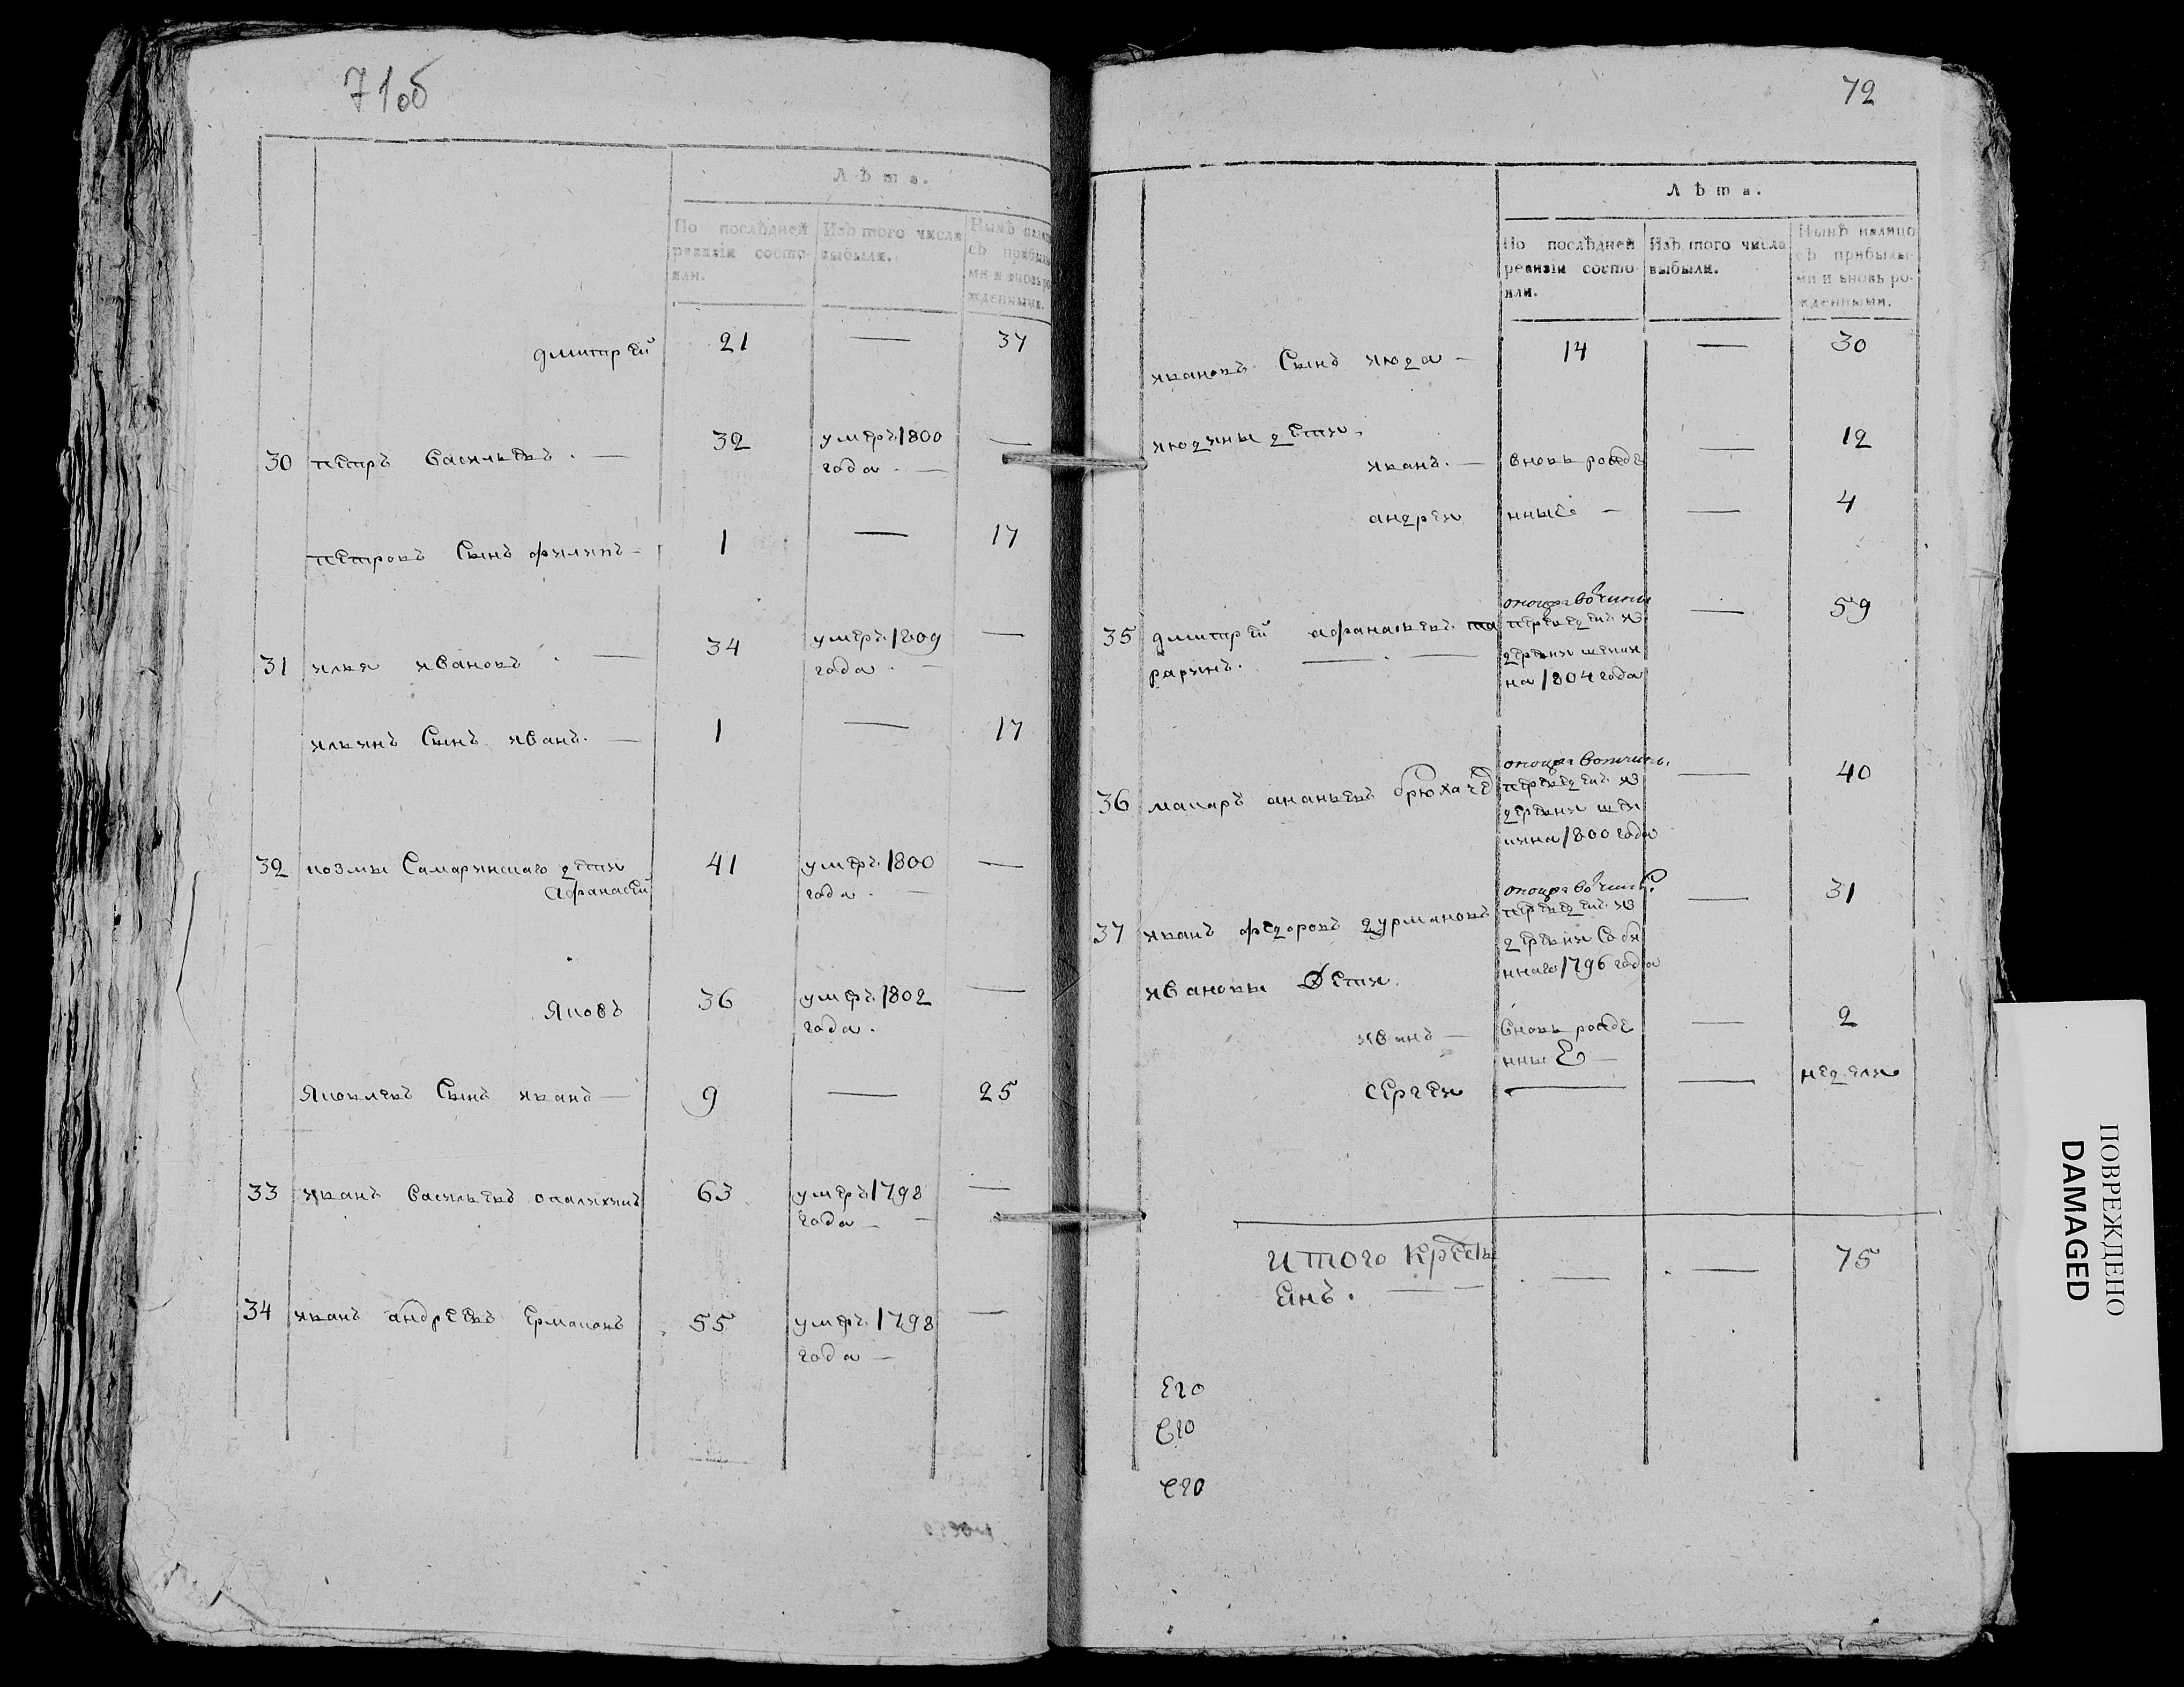 71об
Лѣта.
По послѣдней ревизіи состояли.
Изъ того числа выбыли.
Нынѣ
дмитрей 21 — 37
30 петръ васильевъ. — 32 умеръ 1800 —
года. —
петровъ Сынъ филипъ — 1 — 17
31 илья ивановъ. — 34 умеръ 1809 —
года. —
ильинъ Сынъ иванъ. — 1 — 17
32 козмы Самаринскаго дети
Афанасей 41 умеръ 1800 —
года. —
Яковъ 36 умеръ 1802 —
года.
Яковлевъ Сынъ иванъ — 9 — 25
33 иванъ васильевъ 63 умеръ 1798 —
года —
34 иванъ андреевъ Ермаковъ 55 умеръ 1798 —
года —
72
Лѣта.
По послѣдней ревизіи состояли.
Изъ того числа выбыли.
Нынѣ налицо съ прибылыми и вновь рожденными.
ивановъ Сынъ июда — 14 — 30
июдины дети.
иванъ. — вновь рожде — 12
андреи нные — — 4
35 дмитрей афанасьевъ та — 59
раринъ. — . — переведенъ из
деревни
на 1804 года
36 макаръ ананьевъ — 40
переведенъ из
деревни
1800 года
37 иванъ федоровъ — 31
переведенъ из
деревни
1796 года
ивановы Дети.
иванъ — вновь рожде — 2
нные —
сергеи — — недели
итого кресть
янъ. — — — — 75
Его
Его
Его
ПОВРЕЖДЕНО
DAMAGED